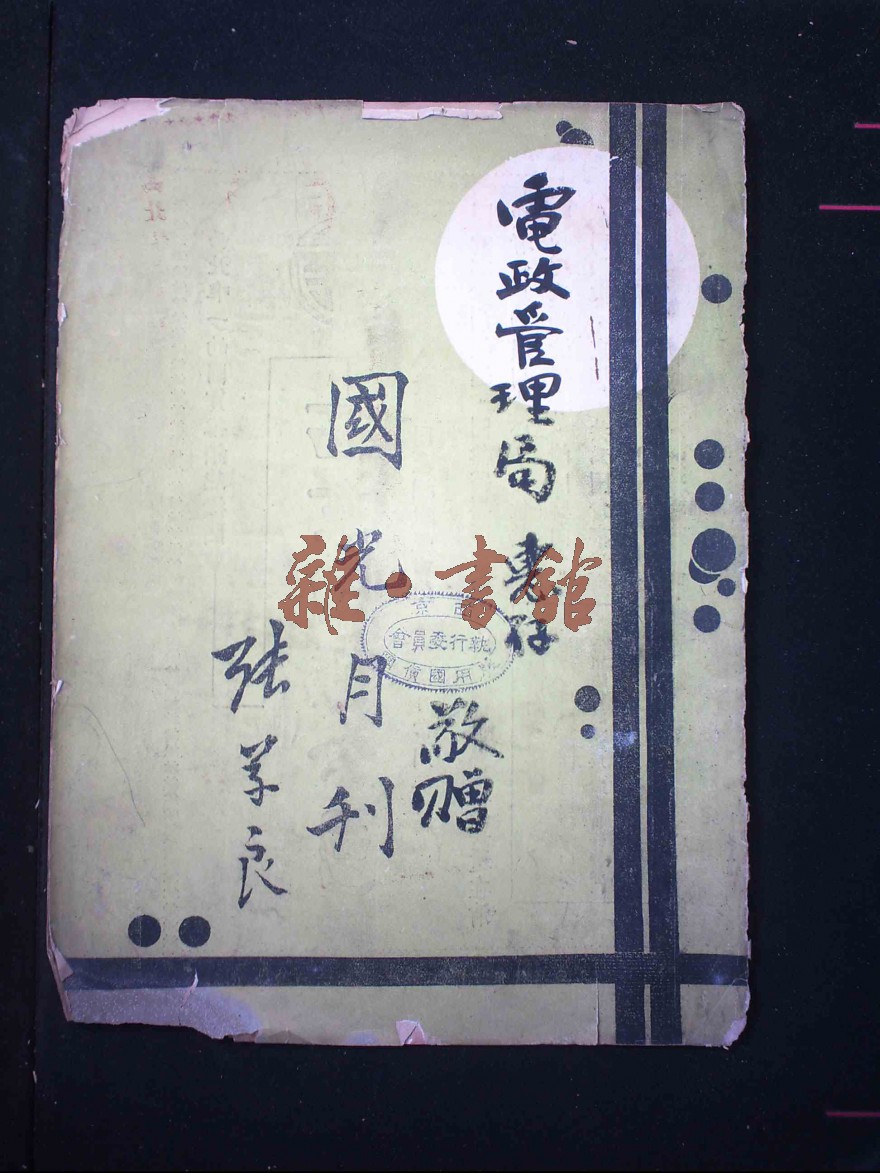 電政管理局 惠存
敬贈
國光月刊
張學良
雜·書館
西京
執行委員會
用國貨